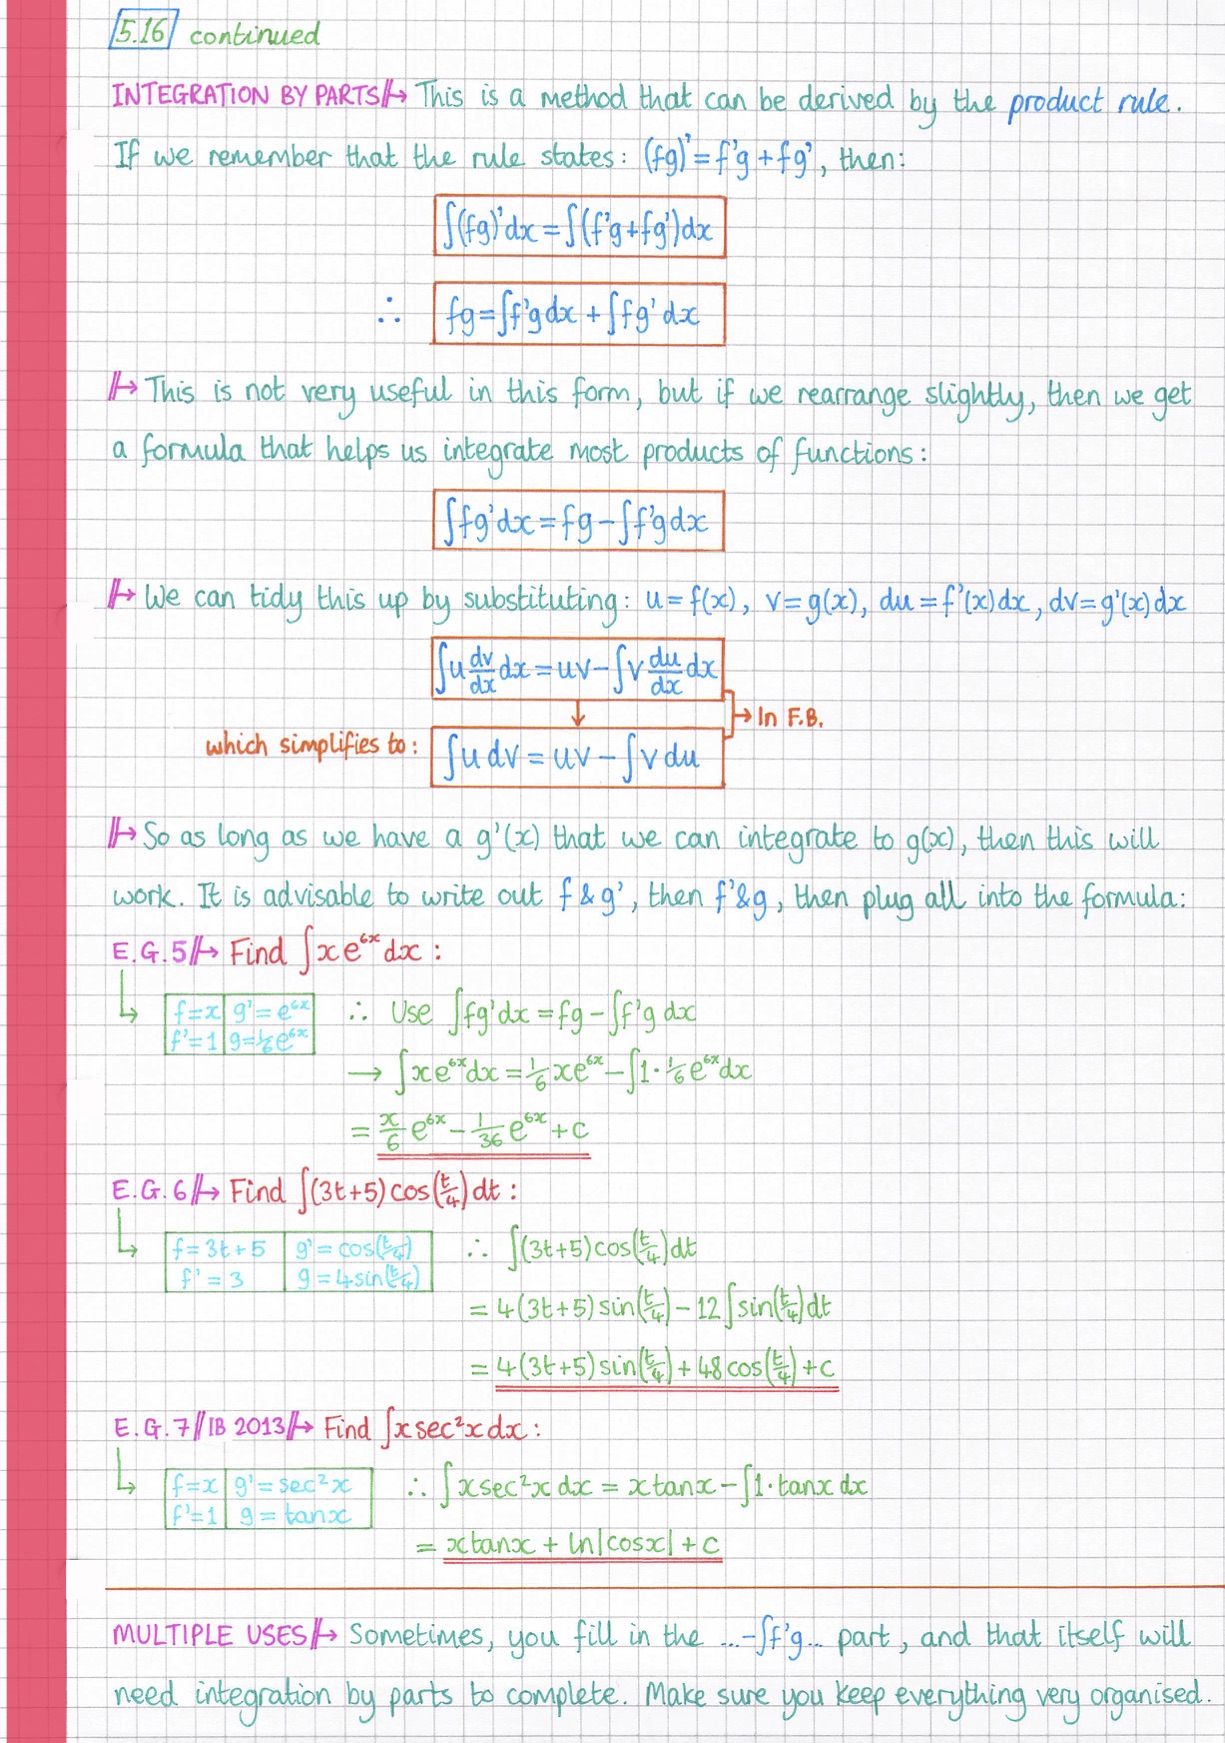 5.16 continued
INTEGRATION BY PARTS//→ This is a method that can be derived by the product rule.
If we remember that the rule states: (fg)' = f'g + fg', then:
∫(fg)'dx = ∫(f'g + fg')dx
∴ fg = ∫f'g dx + ∫fg' dx
//→ This is not very useful in this form, but if we rearrange slightly, then we get
a formula that helps us integrate most products of functions:
∫fg'dx = fg - ∫f'g dx
//→ We can tidy this up by substituting: u = f(x), v = g(x), du = f'(x)dx, dv = g'(x)dx
∫u dv/dx dx = uv - ∫v du/dx dx
→ In F.B.
which simplifies to: ∫u dv = uv - ∫v du
//→ So as long as we have a g'(x) that we can integrate to g(x), then this will
work. It is advisable to write out f & g', then f' & g, then plug all into the formula:
E.G.5//→ Find ∫xe^(6x) dx:
f = x g' = e^(6x) ∴ Use ∫fg'dx = fg - ∫f'g dx
f' = 1 g = 1/6 e^(6x)
→ ∫xe^(6x)dx = 1/6 xe^(6x) - ∫1·1/6 e^(6x)dx
= x/6 e^(6x) - 1/36 e^(6x) + c
E.G.6//→ Find ∫(3t+5)cos(t/4)dt:
f = 3t+5 g' = cos(t/4) ∴ ∫(3t+5)cos(t/4)dt
f' = 3 g = 4sin(t/4)
= 4(3t+5)sin(t/4) - 12∫sin(t/4)dt
= 4(3t+5)sin(t/4) + 48cos(t/4) + c
E.G.7//IB 2013//→ Find ∫x sec²x dx:
f = x g' = sec²x ∴ ∫x sec²x dx = x tanx - ∫1·tanx dx
f' = 1 g = tanx
= x tanx + ln|cosx| + c
MULTIPLE USES//→ Sometimes, you fill in the ...-∫f'g... part, and that itself will
need integration by parts to complete. Make sure you keep everything very organised.